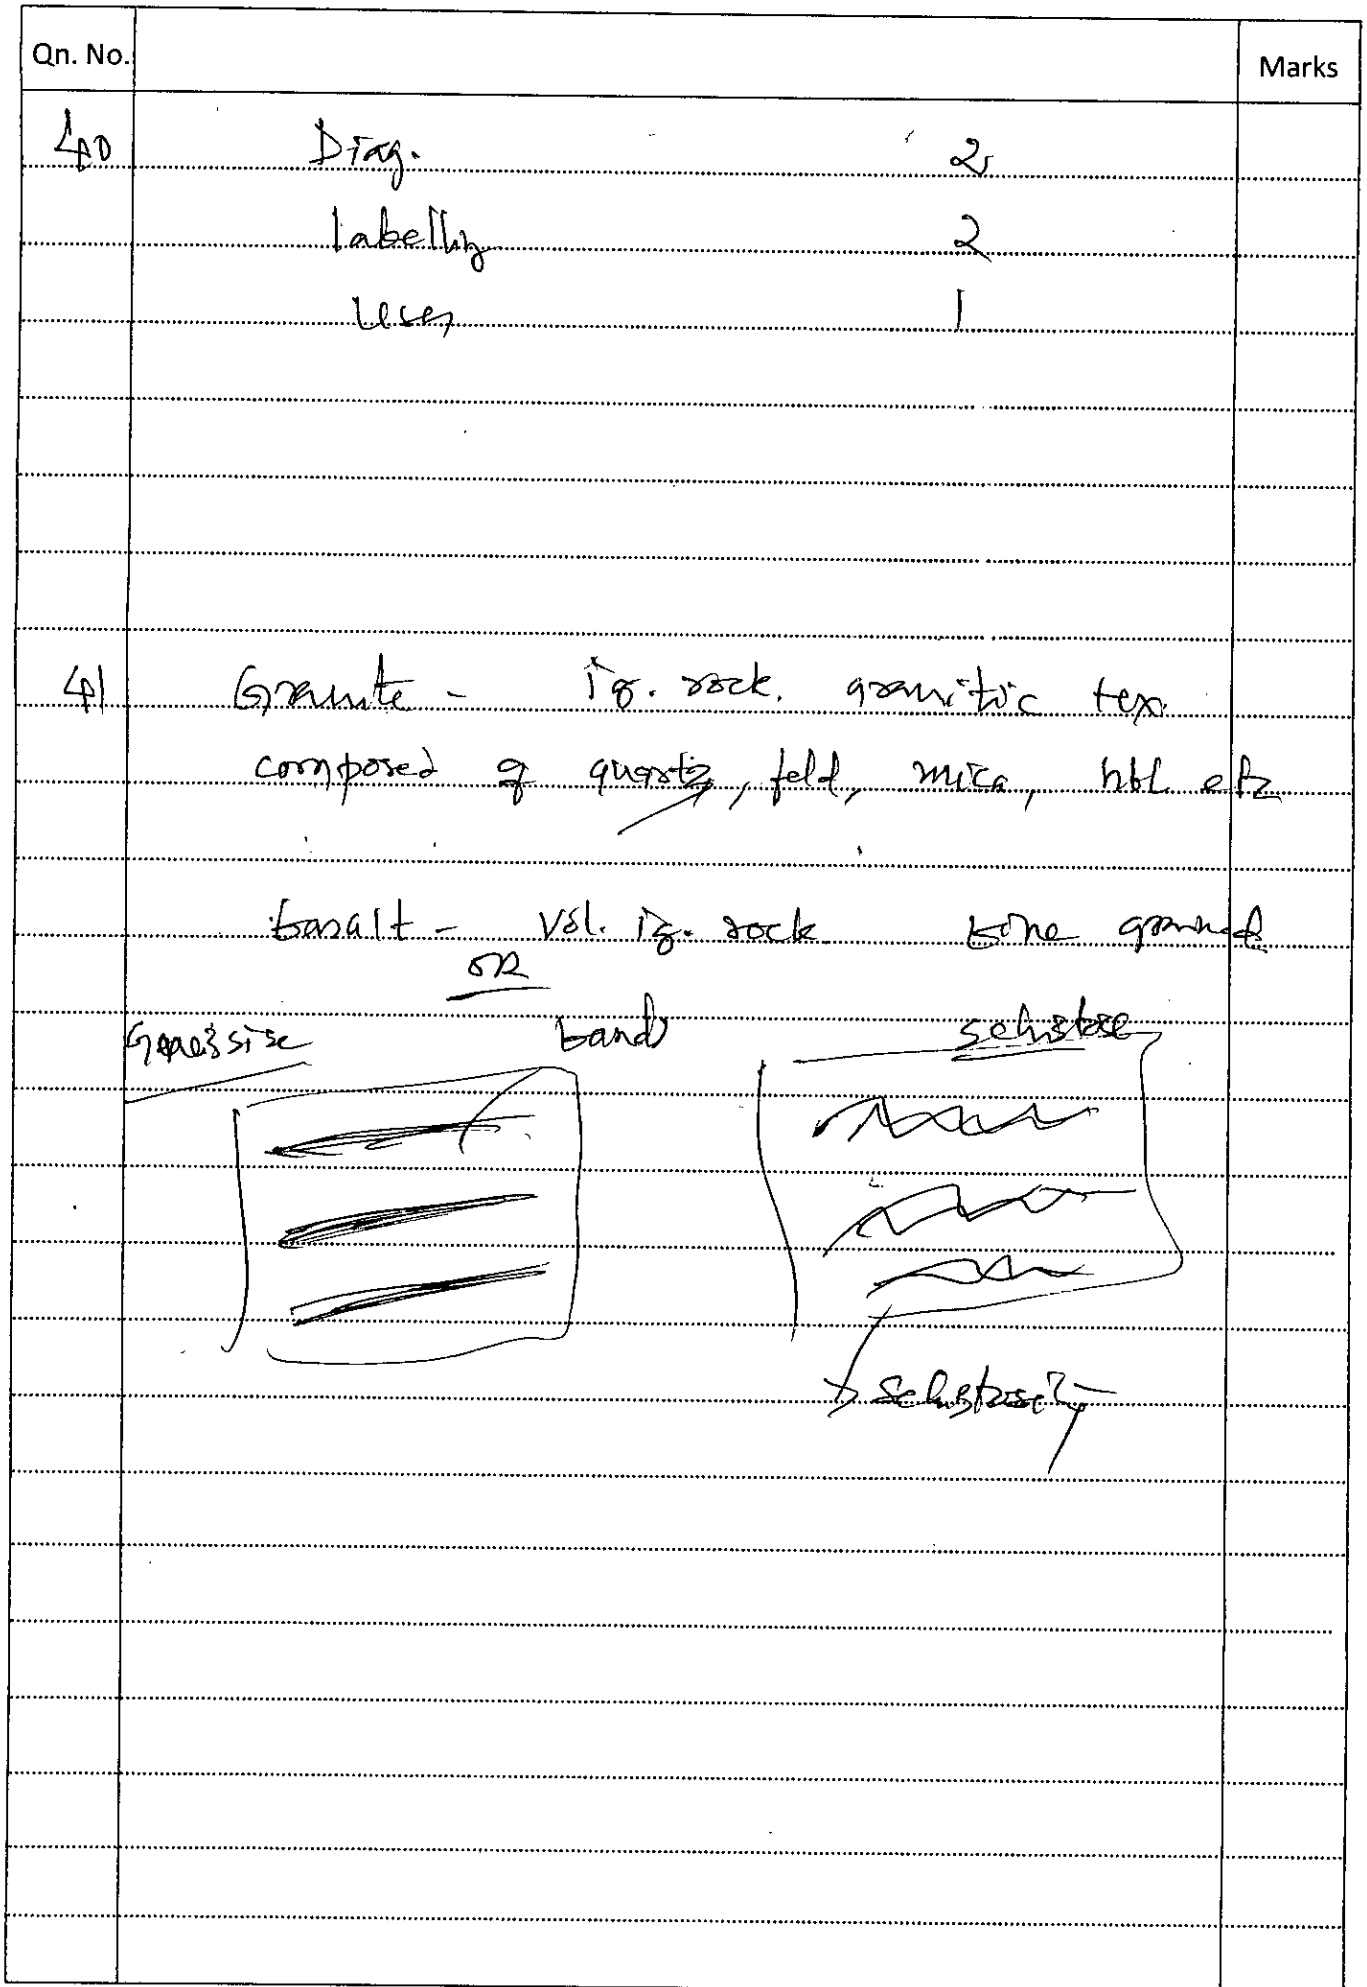 Qn. No. Marks
40 Diag. 2
labelling 2
Uses 1
41 Granite - ig. rock. granitic tex.
composed of quartz, feld, mica, hbl etc
basalt - Vol. ig. rock fine grained
OR
Gneissise band schistose
schistosity